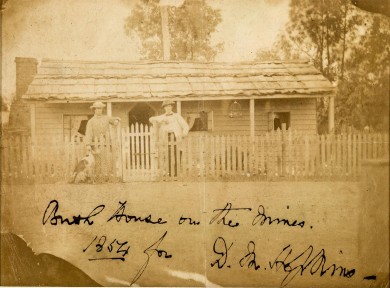 Bush House on the Mines.
1854 for D. M. Hopkins